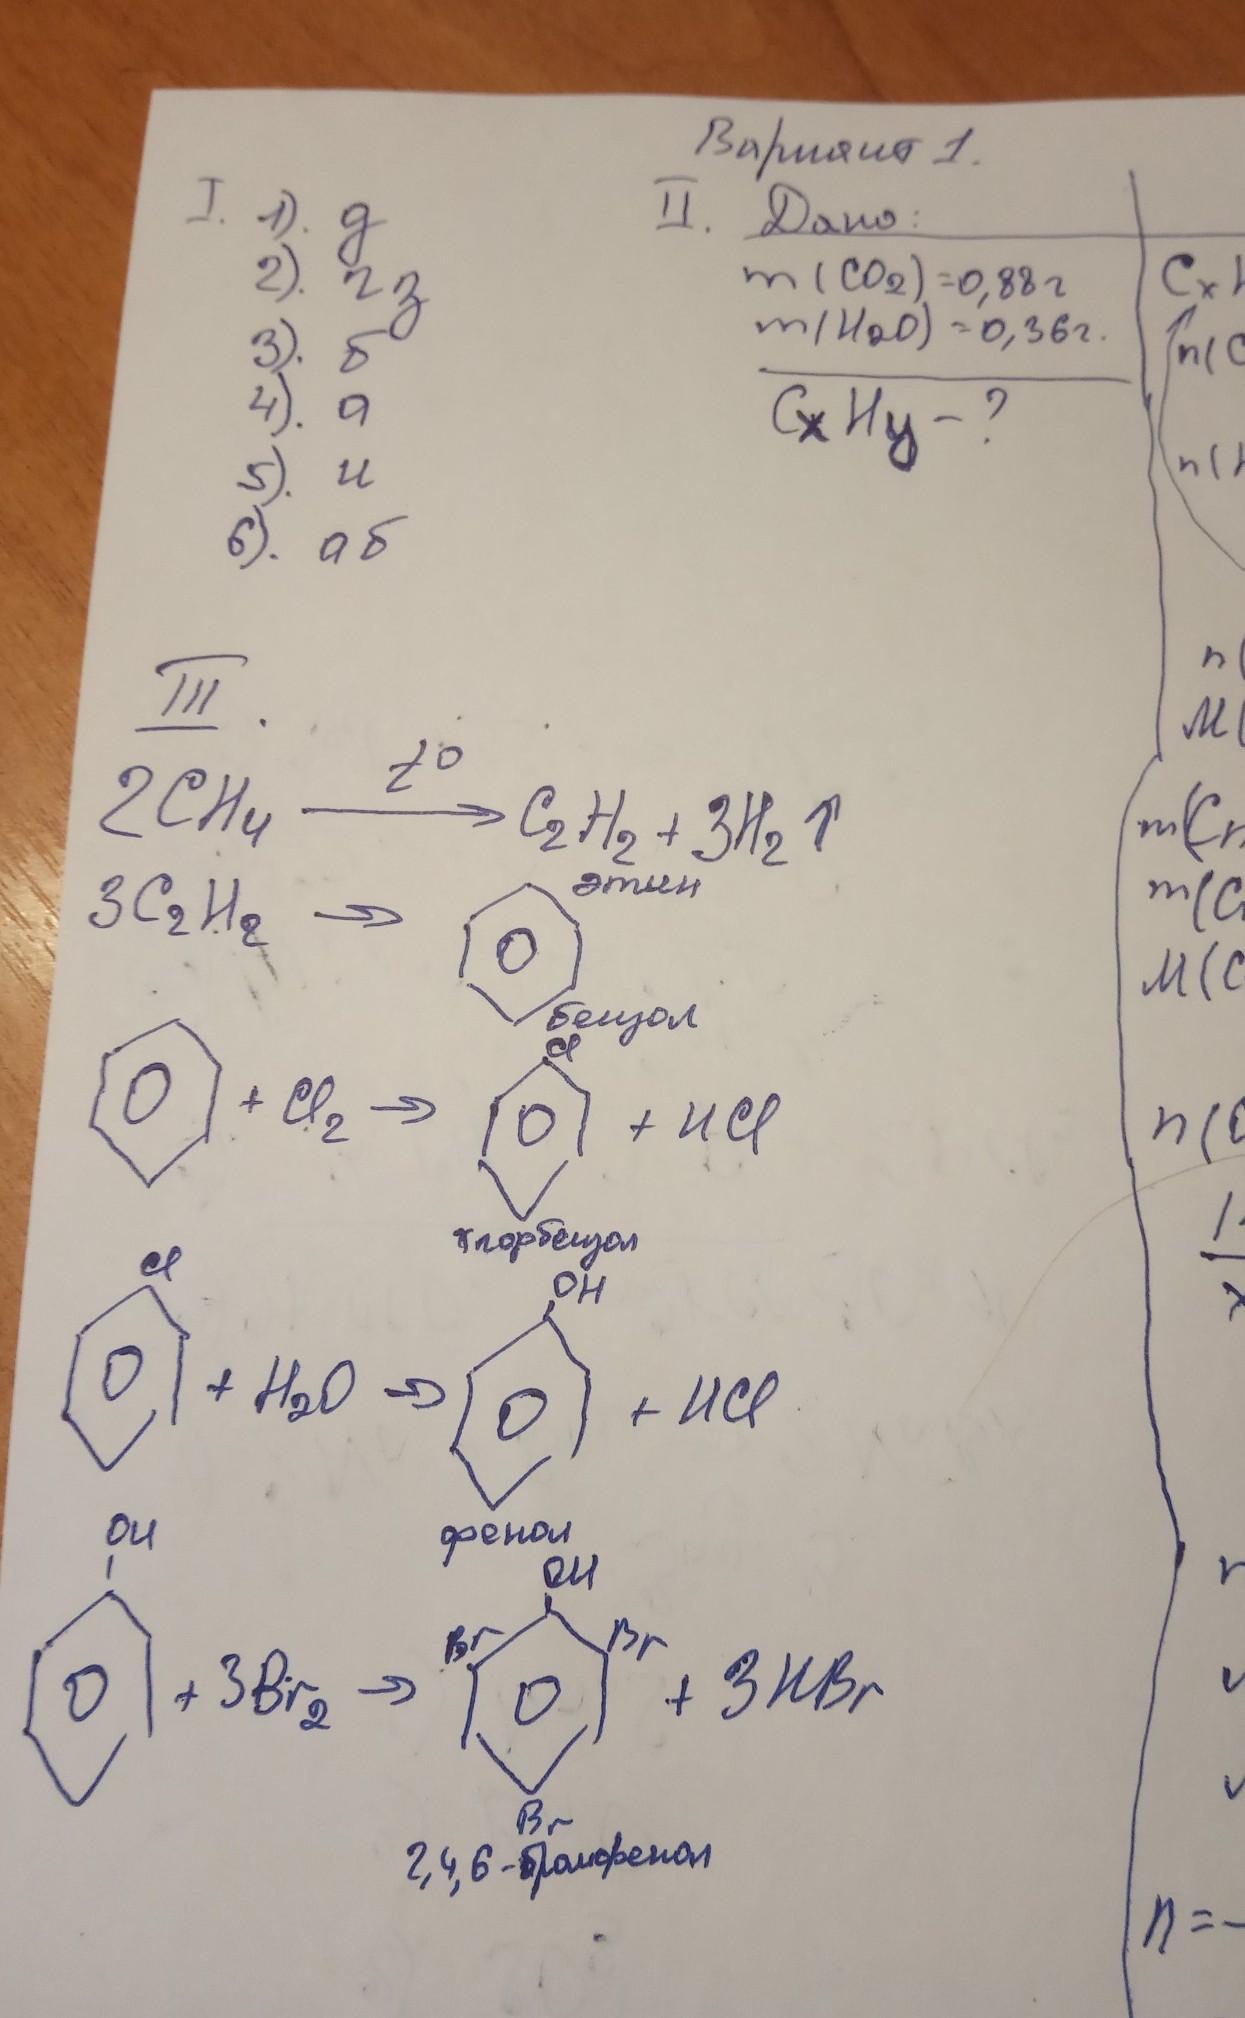 Вариант 1.
I. 1). д
2). г з
3). б
4). а
5). и
6). а б
II. Дано:
m(CO2) = 0,88г
m(H2O) = 0,36г.
CxHy - ?
CxH
n(C
n(H
n(
M(
m(Cn
m(C
M(C
n(
x
n = -
III.
2CH4 t° → C2H2 + 3H2 ↑
этин
3C2H2 →
бензол
+ Cl2 → Cl + HCl
хлорбензол
Cl + H2O → OH + HCl
фенол
OH + 3Br2 → OH Br Br Br + 3HBr
2,4,6-бромфенол